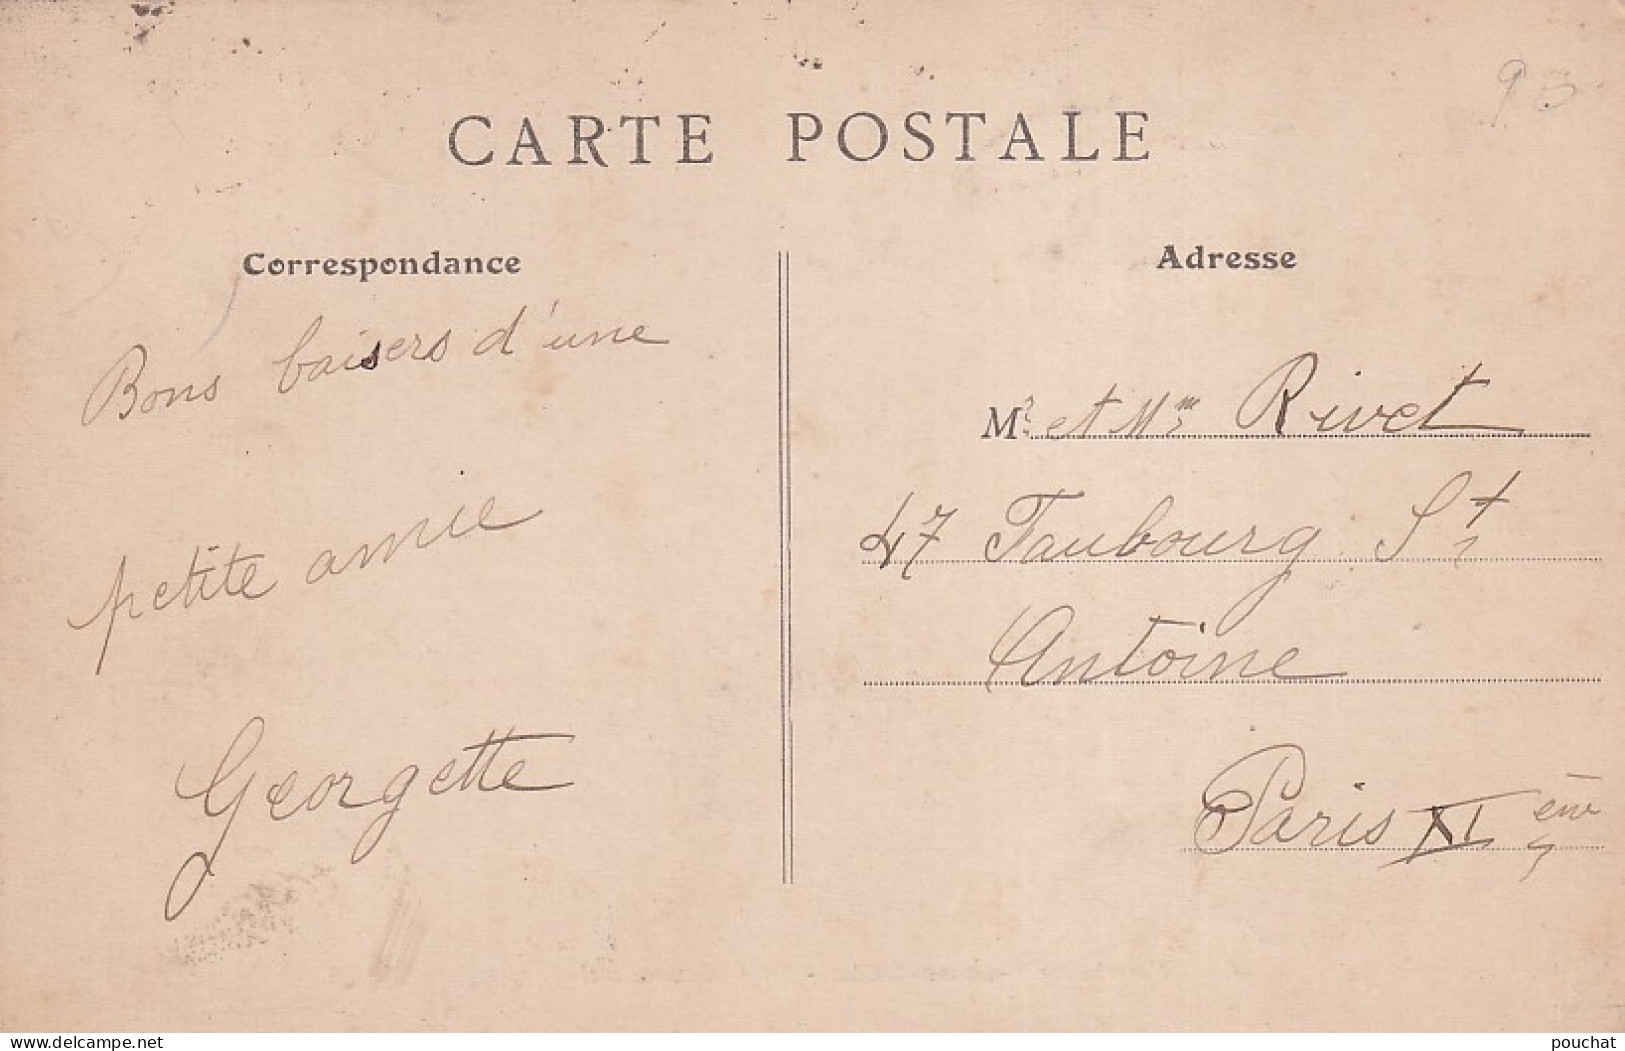 CARTE POSTALE
Correspondance
Bons baisers d'une
petite amie
Georgette
Adresse
Mr et Mme Rivet
47 Faubourg St
Antoine
Paris XI ème
www.delcampe.net
pouchat